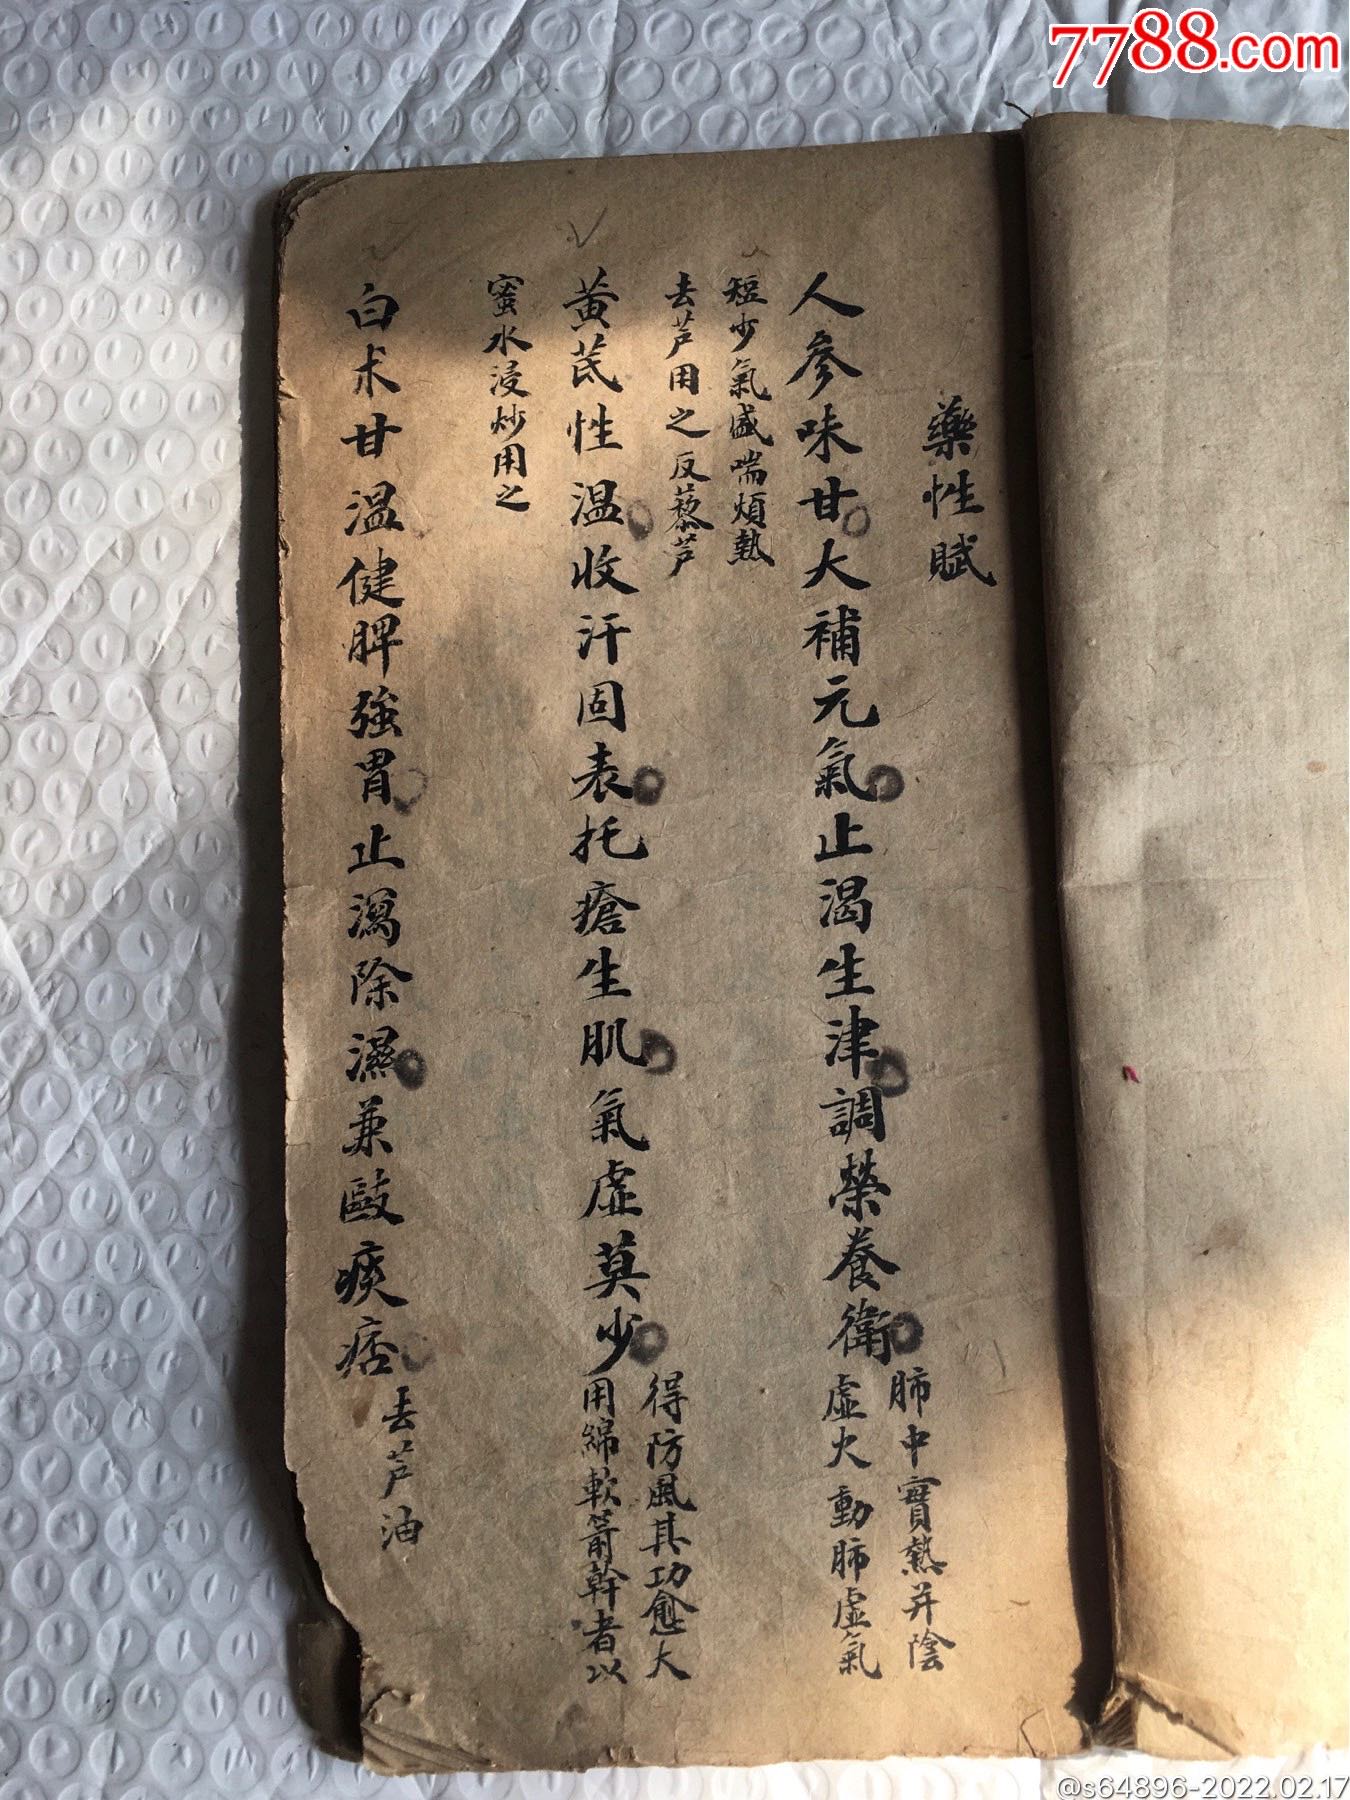 7788.com
藥性賦
人參味甘大補元氣止渴生津調榮養衛
肺中實熱并陰
虛火動肺虛氣
短少氣盛喘煩熱
去芦用之反藜芦
黃芪性温收汗固表托瘡生肌氣虛莫少
得防風其功愈大
用綿軟箭幹者以
蜜水浸炒用之
白朮甘温健脾強胃止瀉除濕兼毆痰痞
去芦油
@s64896-2022.02.17